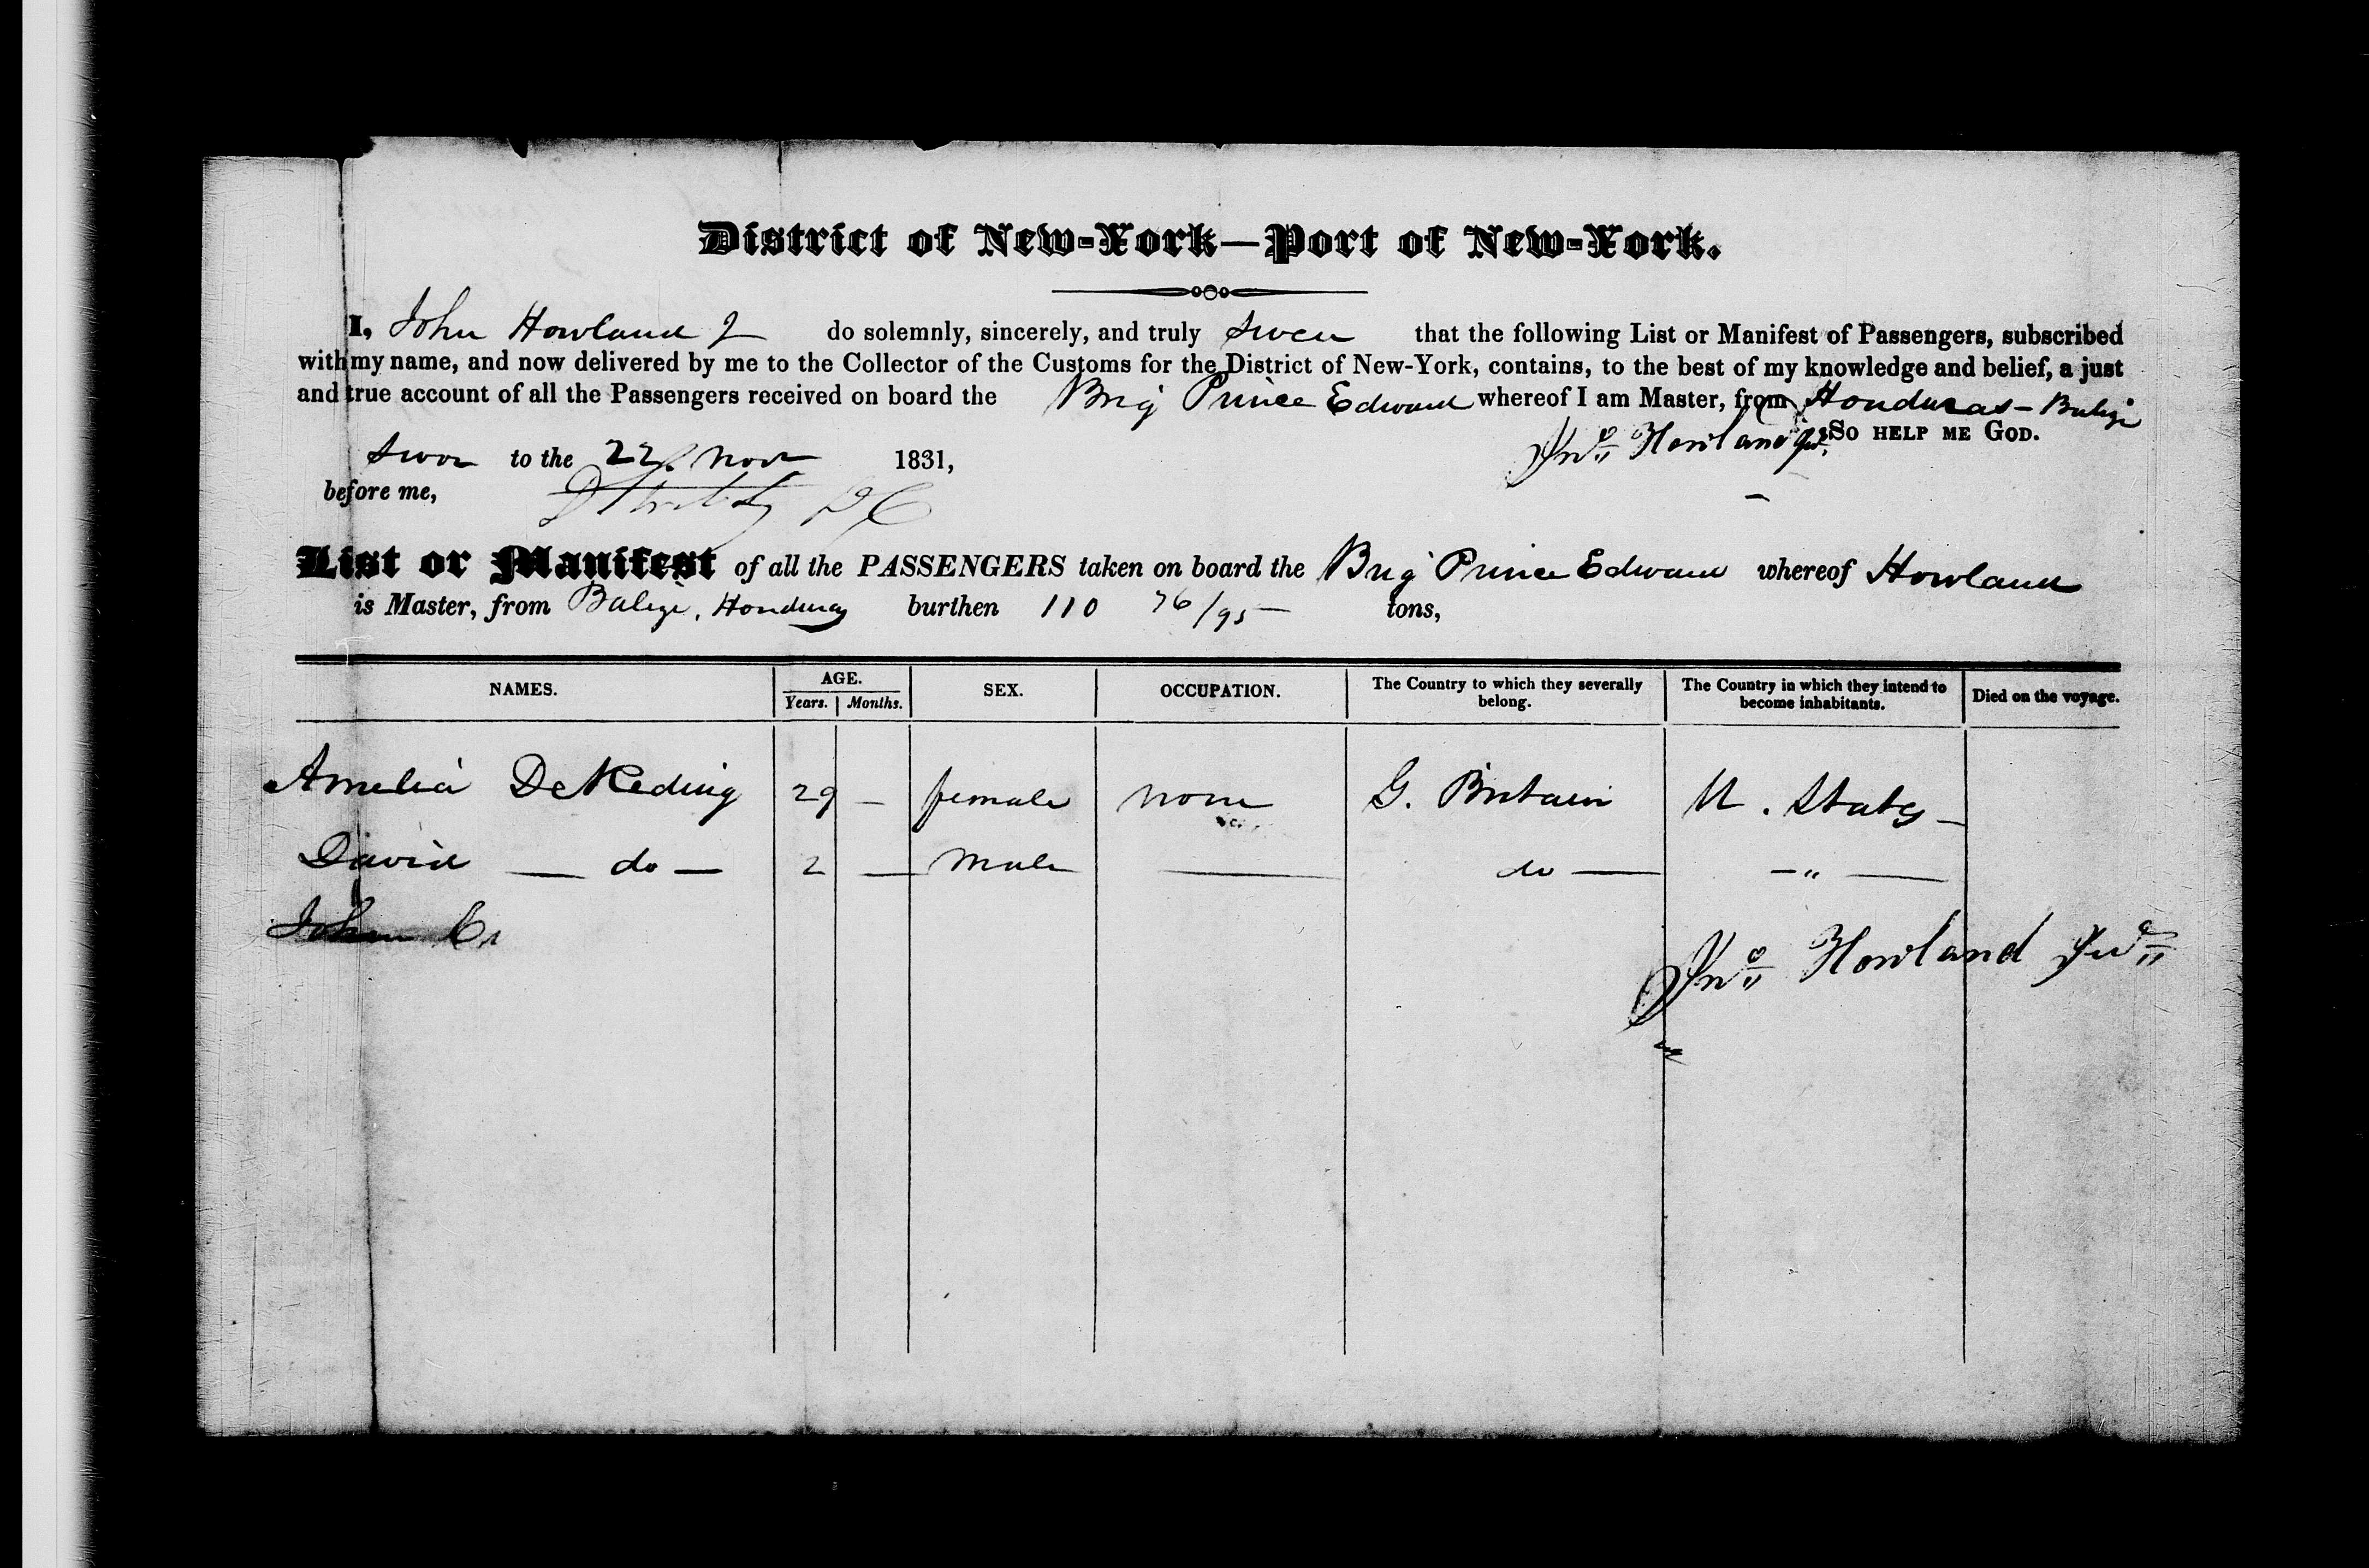 District of New-York—Port of New-York.
I, John Howland J do solemnly, sincerely, and truly swear that the following List or Manifest of Passengers, subscribed
with my name, and now delivered by me to the Collector of the Customs for the District of New-York, contains, to the best of my knowledge and belief, a just
and true account of all the Passengers received on board the Brig Prince Edward whereof I am Master, from Honduras - Balize
Jno Howland Jur. So help me God.
Swor to the 22 Novr 1831,
before me, DC
List or Manifest of all the PASSENGERS taken on board the Brig Prince Edward whereof Howland
is Master, from Balize, Honduras burthen 110 76/95 tons,
NAMES. AGE. SEX. OCCUPATION. The Country to which they severally belong. The Country in which they intend to become inhabitants. Died on the voyage.
Years. Months.
Amelia DeReding 29 — female none G. Britain U. States —
David — do — 2 — male — do — — " —
John Cr
Jno Howland Jur